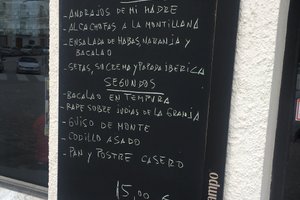 - ANDRAJOS DE MI MADRE
- ALCACHOFAS A LA MONTILLANA
- ENSALADA DE HABAS, NARANJA Y
BACALAO
- SETAS, SU CREMA Y PAPADA IBÉRICA
SEGUNDOS
- BACALAO EN TEMPURA
- RAPE SOBRE JUDIAS DE LA GRANJA
- GUISO DE MONTE
- CODILLO ASADO
- PAN Y POSTRE CASERO
15,00 €
ampo